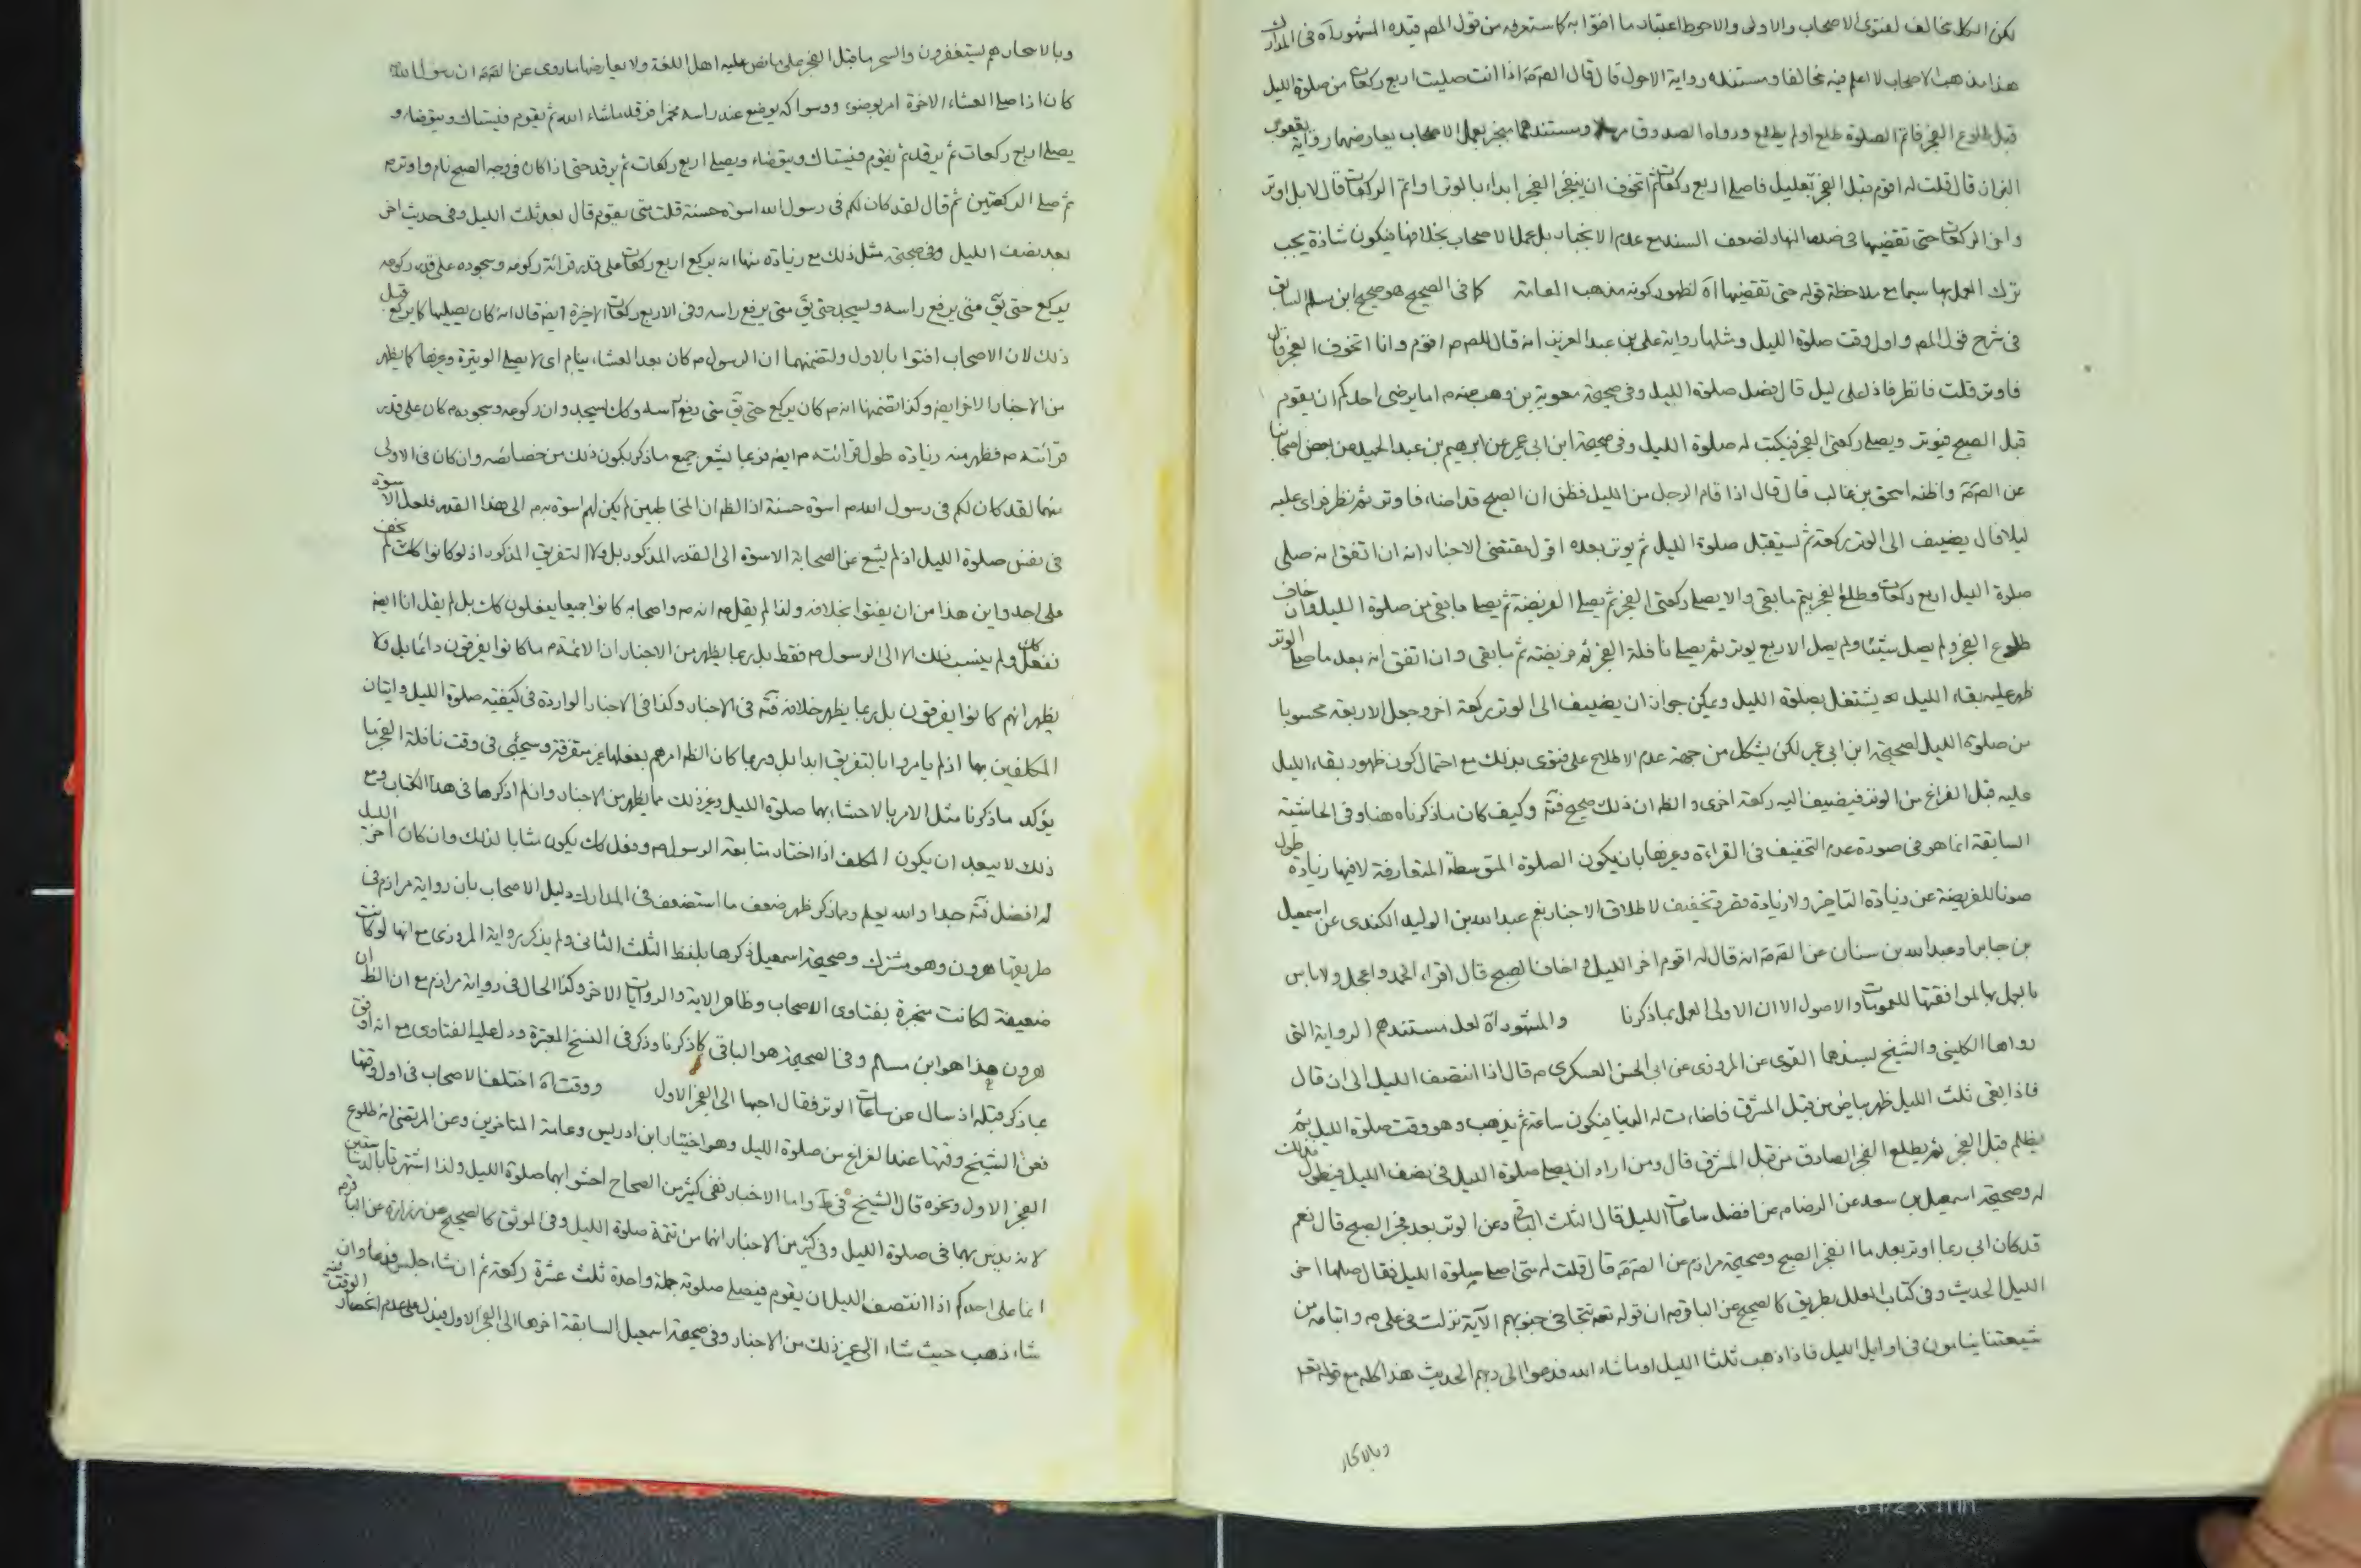 لكن الكل مخالف لفتوى الاصحاب والاولى والاحوط اعتبار ما افتوا به كا ستعرفه من قول المص قيده المشهور آه فى المدارك
هذا مذهب الاصحاب لا اعلم فيه مخالفا ومستنده رواية الاحول قال قال الصّ م اذا انت صليت اربع ركعات من صلوة الليل
قبل طلوع الفجر فاتم الصلوة طلع او لم يطلع ورواه الصدوق ومستندهما منجبر بعمل الاصحاب يعارضهما رواية يعقوب
البزاز قال قلت له اقوم قبل الفجر بقليل فاصلى اربع ركعات ثم اتخوف ان ينفجر الفجر ابداء بالوتر او اتم الركعات قال لا بل اوتر
واخر الركعات حتى تقضيها فى صدر النهار لضعف السند مع عدم الانجبار بل عمل الاصحاب بخلافها فيكون شاذة يجب
ترك العمل بها سيما مع ملاحظة قوله حتى تقضيها آه لظهور كونه مذهب العامة كا فى الصحيح هو صحيح ابن مسلم السابق
فى شرح قول المص واول وقت صلوة الليل ومثلها رواية على بن عبد العزيز انه قال للص م اقوم وانا اتخوف الفجر قال
فاوتر قلت فانظر فاذا على ليل قال فصل صلوة الليل وفى صحيحة معوية بن وهب عنه م اما يرضى احدكم ان يقوم
قبل الصبح فيوتر ويصلى ركعتى الفجر فيكتب له صلوة الليل وفى صحيحة ابن ابى عمير عن ابرهيم بن عبد الحميد عن بعض اصحابنا
عن الصّ م واظنه اسحق بن غالب قال قال اذا قام الرجل من الليل فظن ان الصبح قد اضاء فاوتر ثم نظر فراى عليه
ليلا قال يضيف الى الوتر ركعة ثم يستقبل صلوة الليل ثم يوتر بعده اقول مقتضى الاخبار انه ان اتفق انه صلى
صلوة الليل اربع ركعات وطلع الفجر يتم ما بقى والا يصلى ركعتى الفجر ثم يصلى الفريضة ثم يصلى ما بقى من صلوة الليل وان خاف
طلوع الفجر ولم يصل شيئا ولم يصل الاربع يوتر ثم يصلى نافلة الفجر ثم فريضته ثم ما بقى وان اتفق انه بعد ما صلى الوتر
ظهر عليه بقاء الليل يشتغل بصلوة الليل ويمكن جواز ان يضيف الى الوتر ركعة اخر وجعل الاربعة محسوبا
من صلوة الليل لصحيحة ابن ابى عمير لكن يشكل من جهة عدم الاطلاع على فتوى بذلك مع احتمال كون ظهور بقاء الليل
عليه قبل الفراغ من الوتر فيضيف اليه ركعة اخرى والظ ان ذلك صحيح فتّه وكيف كان ما ذكرناه هنا وفى الحاشية
السابقة انما هو فى صورة عدم التخفيف فى القراءة وغيرها بان يكون الصلوة المتوسطة المتعارفة لا فيها زيادة طول
صونا للفريضة عن زيادة التاخير ولا زيادة تخفيف لاطلاق الاخبار نعم عبد الله بن الوليد الكندى عن اسمعيل
بن جابر او عبد الله بن سنان عن الصّ م انه قال له اقوم اخر الليل واخاف الصبح قال اقراء الحمد واعجل ولا باس
بالعمل بها لموافقتها للعمومات والاصول الا ان الاولى العمل بما ذكرنا والمشهور آه لعل مستندهم الرواية التى
رواها الكلينى والشيخ بسندها القوى عن المروزى عن ابى الحسن العسكرى م قال اذا انتصف الليل الى ان قال
فاذا بقى ثلث الليل ظهر بياض من قبل المشرق فاضاءت له الدنيا فيكون ساعة ثم يذهب وهو وقت صلوة الليل ثم
يظلم قبل الفجر ثم يطلع الفجر الصادق من قبل المشرق قال ومن اراد ان يصلى صلوة الليل فى نصف الليل فيطول فذلك
له وصحيحة اسمعيل بن سعد عن الرضا م عن افضل ساعات الليل قال الثلث الباقى وعن الوتر بعد فجر الصبح قال نعم
قد كان ابى ربما اوتر بعد ما انفجر الصبح وصحيحة مرازم عن الصّ م قال قلت له متى اصلى صلوة الليل فقال صلها اخر
الليل الحديث وفى كتاب العلل بطريق كالصحيح عن الباقر م ان قوله تعه تتجافى جنوبهم الآية نزلت فى على م واتباعه من
شيعتنا ينامون فى اوايل الليل فاذا ذهب ثلثا الليل او ما شاء الله فزعوا الى ربهم الحديث هذا كله مع قوله تعه
وبالاسحار
وبالاسحار هم يستغفرون والسحر ما قبل الفجر على ما نص عليه اهل اللغة ولا يعارضها ما روى عن الصّ م ان رسول الله
كان اذا صلى العشاء الاخرة امر بوضوء وسواكه يوضع عند راسه مخمرا فرقد ما شاء الله ثم يقوم فيستاك ويتوضاء و
يصلى اربع ركعات ثم يرقد ثم يقوم فيستاك ويتوضاء ويصلى اربع ركعات ثم يرقد حتى اذا كان فى وجه الصبح قام واوتر م
ثم صلى الركعتين ثم قال لقد كان لكم فى رسول الله اسوة حسنة قلت متى يقوم قال بعد ثلث الليل وفى حديث اخر
بعد نصف الليل وفى صحيحة مثل ذلك مع زيادة منها انه يركع اربع ركعات على قدر قرائة ركوعه وسجوده على قدر ركوعه
يركع حتى يقّ متى يرفع راسه ويسجد حتى يقّ متى يرفع راسه وفى الاربع ركعات الاخيرة ايضه قال انه كان يصليها كا يركع قبل
ذلك لان الاصحاب افتوا بالاول ولتضمنهما ان الرسول م كان بعد العشاء ينام اى لا يصلى الوتيرة وغيرها كا يظهر
من الاخبار الاخر ايضه وكذا تضمنها انه م كان يركع حتى يقّ متى رفع راسه وكان يسجد وان ركوعه وسجوده م كان على قدر
قرائته م فظهر منه زيادة طول قرائته م ايضه فربما يشعر جميع ما ذكر بكون ذلك من خصائصه وان كان فى الاولى
منهما لقد كان لكم فى رسول الله م اسوة حسنة اذ الظ ان المخاطبين لم يكن لهم اسوة به م الى هذا القدر فلعل الاسوة
فى نفس صلوة الليل اذ لم يشع عن الصحابة الاسوة الى القدر المذكور بل ولا التفريق المذكور اذ لو كانوا كك لم يخف
على احد واين هذا من ان يفتوا بخلافه ولذا لم يقل م انه م واصحابه كانوا جميعا يفعلون كك بل لم يقل انا ايضه
نفعل كك ولم ينسب ذلك الا الى الرسول م فقط بل ربما يظهر من الاخبار ان الائمة م ما كانوا يفرقون دائما بل ولا
يظهر انهم كانوا يفرقون بل ربما يظهر خلافه فتّه فى الاخبار وكذا فى الاخبار الواردة فى كيفية صلوة الليل واتيان
المكلفين بها اذ لم يامروا بالتفريق ابدا بل وربما كان الظ امرهم بفعلها غير متفرقة وسيجئى فى وقت نافلة الفجر ما
يؤكد ما ذكرنا مثل الامر بالاحشاء بهما صلوة الليل وغير ذلك مما يظهر من الاخبار وان لم اذكرها فى هذا الكتاب ومع
ذلك لا يبعد ان يكون المكلف اذا اختار متابعة الرسول م وفعل كك يكون مثابا لذلك وان كان اخر الليل
له افضل فتّه جدا والله يعلم ومما ذكر ظهر ضعف ما استضعف فى المدارك دليل الاصحاب بان رواية مرازم فى
طريقها هرون وهو مشترك وصحيحة اسمعيل ذكرها بلفظ الثلث الثانى ولم يذكر رواية المروزى مع انها لو كانت
ضعيفة لكانت منجبرة بفتاوى الاصحاب وظاهر الاية والروايات الاخر وكذا الحال فى رواية مرازم مع ان الظ ان
هرون هذا هو ابن مسلم وفى الصحيحة هو الباقى كا ذكرنا وذكر فى النسخ المعتبرة ودل عليه الفتاوى مع انه اوفق
بما ذكر قبله اذ سال عن ساعات الوتر فقال احبها الى الفجر الاول ووقت آه اختلف الاصحاب فى اول وقتها
فعن الشيخ وقتها عند الفراغ من صلوة الليل وهو اختيار ابن ادريس وعامة المتاخرين وعن المرتضى انه طلوع
الفجر الاول ونحوه قال الشيخ فى ط واما الاخبار ففى كثير من الصحاح احشوا بهما صلوة الليل ولذا اشتهرتا بالدساستين
لانه يدس بهما فى صلوة الليل وفى كثير من الاخبار انهما من تتمة صلوة الليل وفى الموثق كالصحيح عن زرارة عن الباقر م
انما على احدكم اذا انتصف الليل ان يقوم فيصلى صلوته جملة واحدة ثلث عشرة ركعة ثم ان شاء جلس فدعا وان
شاء ذهب حيث شاء الى غير ذلك من الاخبار وفى صحيحة اسمعيل السابقة اخرها الى الفجر الاول فيدل على عدم انحصار الوقت فيه